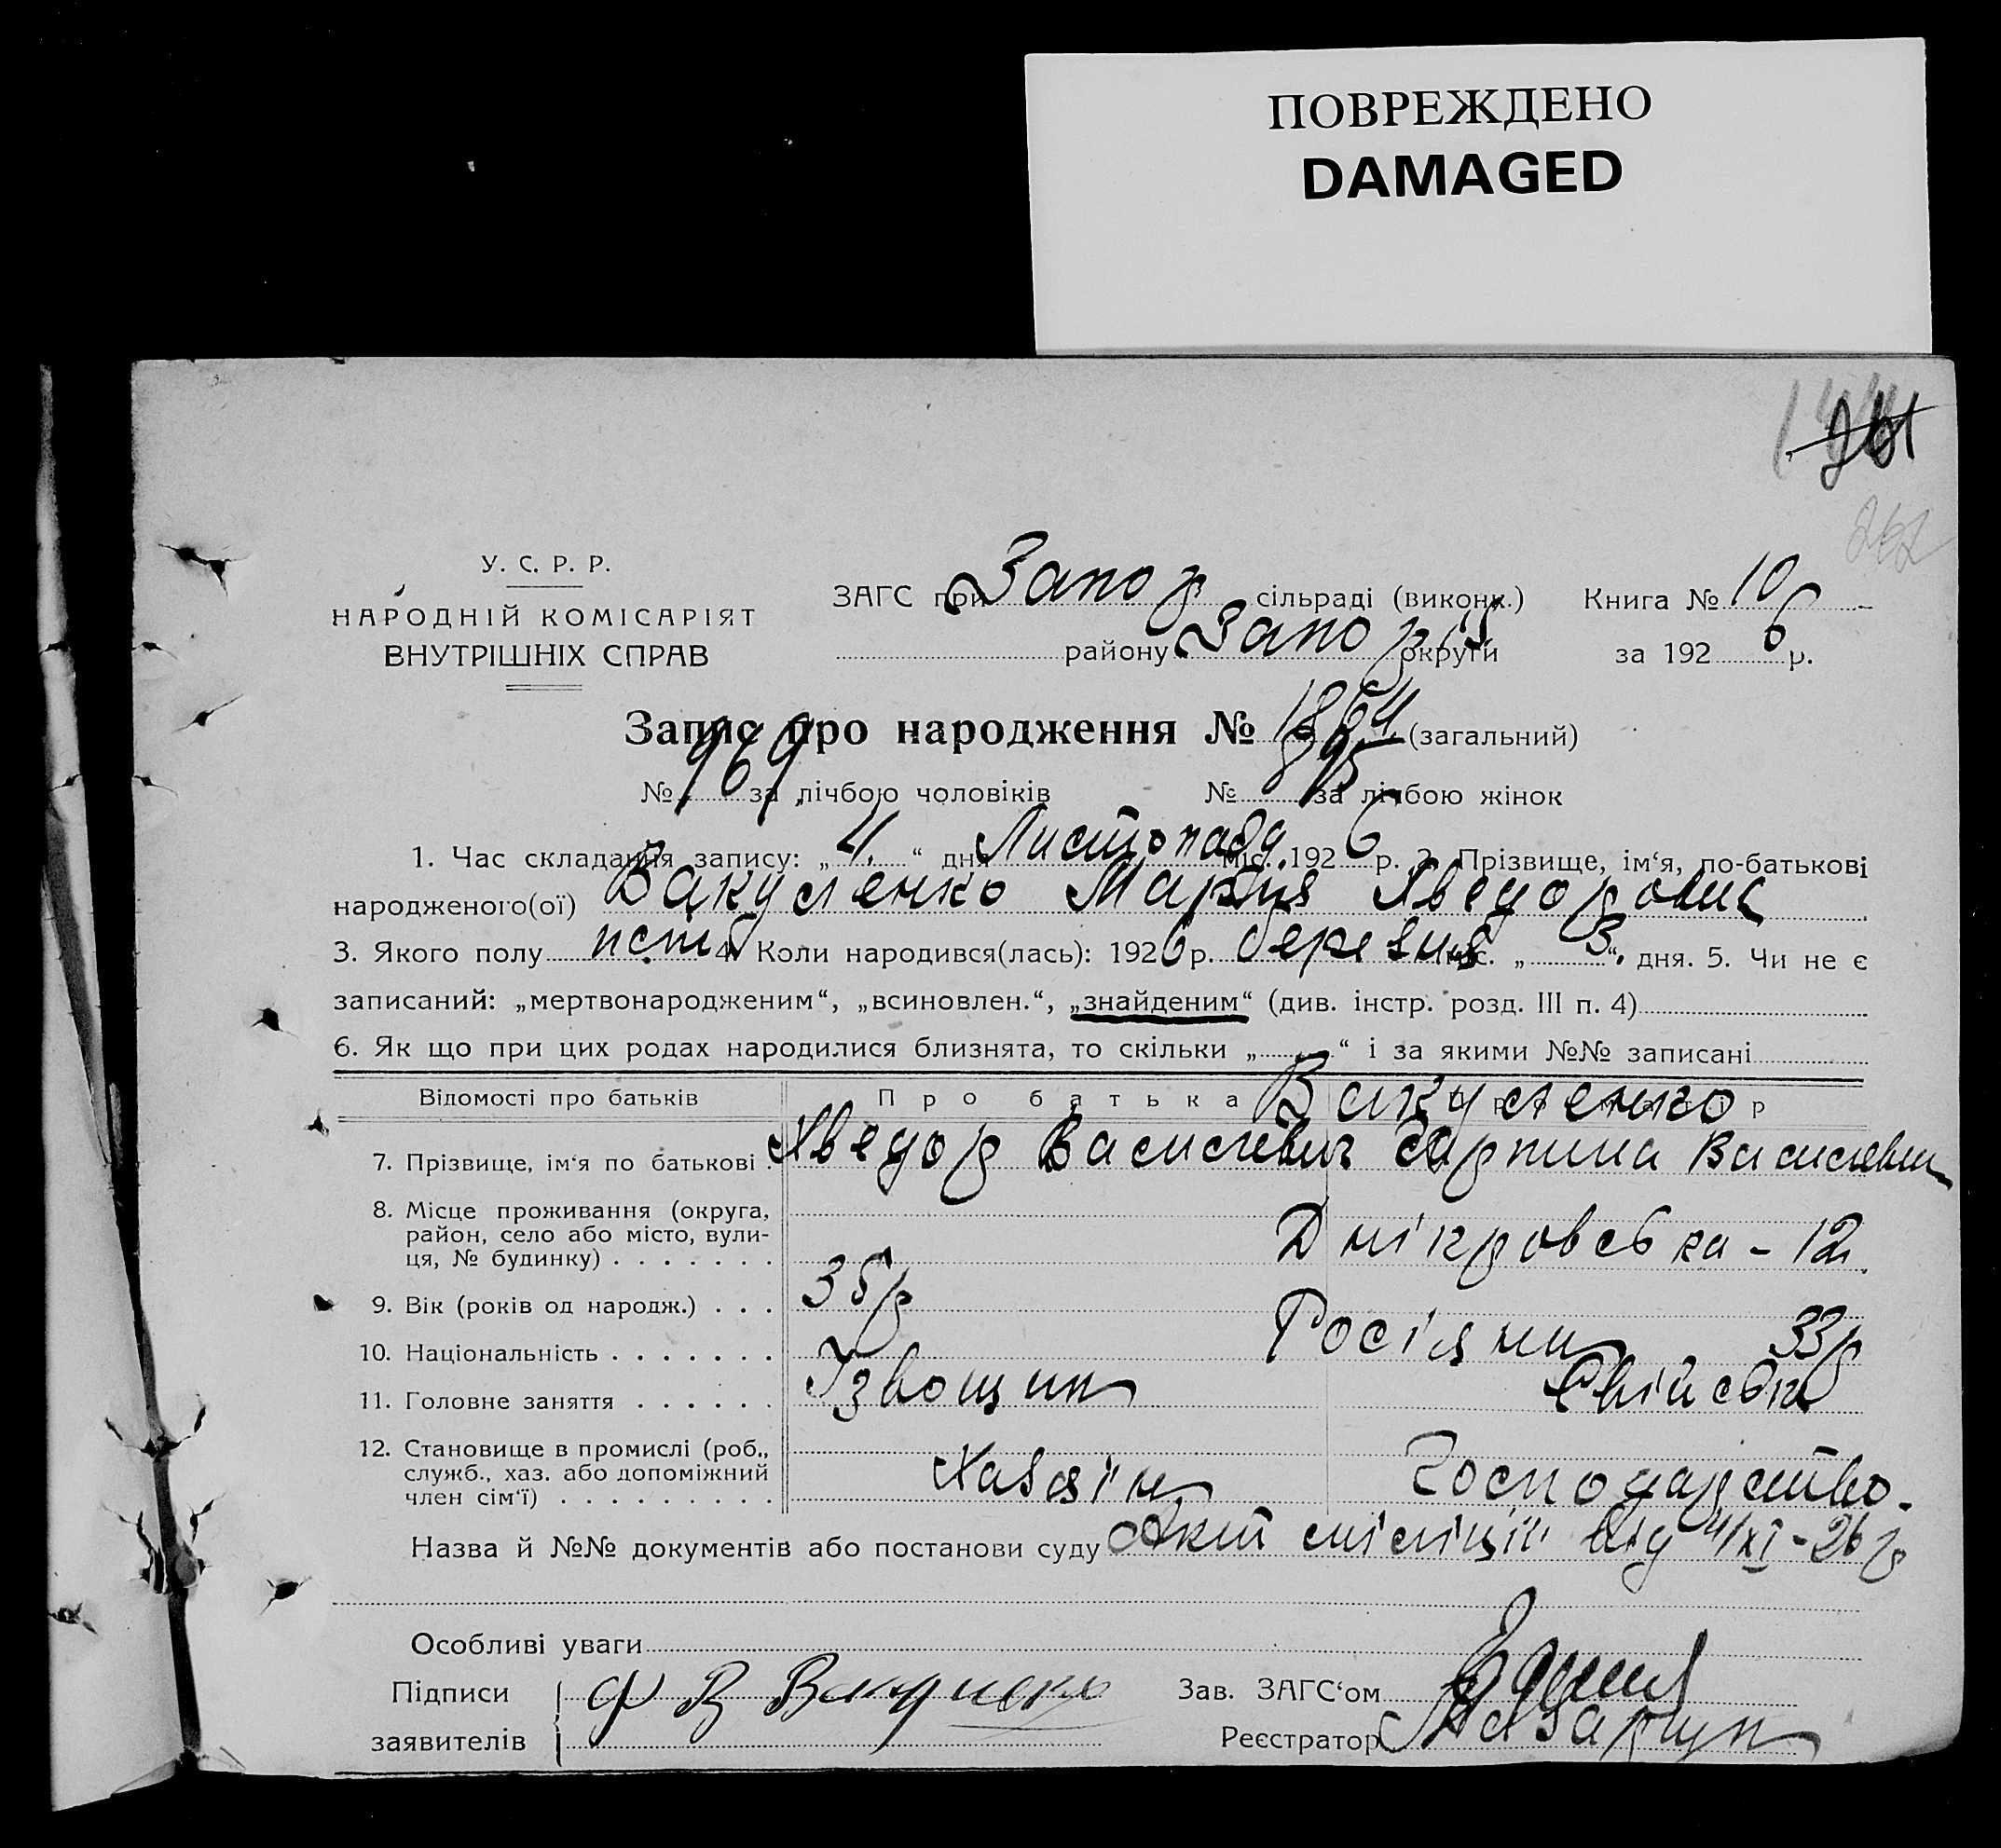 ПОВРЕЖДЕНО
DAMAGED
261
262
У. С. Р. Р.
НАРОДНІЙ КОМІСАРІЯТ
ВНУТРІШНІХ СПРАВ
ЗАГС при Запор сільраді (виконк.) Книга № 10
району Запоріз округи за 1926 р.
Запис про народження № 1864 (загальний)
№ 969 за лічбою чоловіків № 895 за лічбою жінок
1. Час складання запису: „4.“ дня Листопада міс. 1926 р. 2. Прізвище, ім‘я, по-батькові
народженого(ої) Вакуленко Марія
3. Якого полу 4. Коли народився(лась): 1926 р. березня міс. „3“. дня. 5. Чи не є
записаний: „мертвонародженим“, „всиновлен.“, „знайденим“ (див. інстр. розд. III п. 4)
6. Як що при цих родах народилися близнята, то скільки „ “ і за якими №№ записані
Відомості про батьків Про батька Вакуленко
7. Прізвище, ім‘я по батькові Хведор Василевич Василевна
8. Місце проживання (округа,
район, село або місто, вули-
ця, № будинку) . . . . . . . Дніпровська - 12.
9. Вік (років од народж.) . . . 35 р 33 р
10. Національність . . . . . . . Росіяни
11. Головне заняття . . . . . . Ізвощик Свійськ
12. Становище в промислі (роб.,
служб., хаз. або допоміжний
член сім‘ї) . . . . . . . . . Хазяїн Господарство.
Назва й №№ документів або постанови суду Акт міліції від 4/XI-26 р
Особливі уваги
Підписи Ф В Вакуленко Зав. ЗАГС‘ом
заявителів Реєстратор